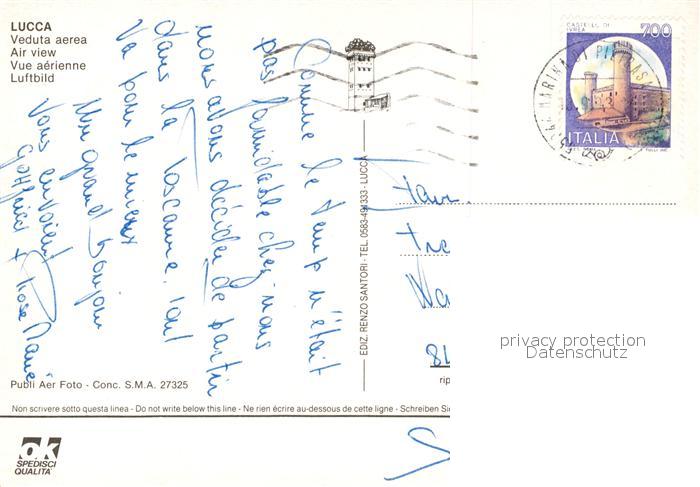 LUCCA
Veduta aerea
Air view
Vue aérienne
Luftbild
CASTELLO DI
IVREA
700
ITALIA
MARINA DI
Comme le temp n'était
pas formidable chez nous
nous avons décider de partir
dans la Toscane. Tout
va pour le mieux
Un grand bonjour
vous envoient
+ Rose Marie
EDIZ. RENZO SANTORI - TEL. 0583-491333 - LUCCA
privacy protection
Datenschutz
Publi Aer Foto - Conc. S.M.A. 27325
rip
Non scrivere sotto questa linea - Do not write below this line - Ne rien écrire au-dessous de cette ligne - Schreiben Si
ok
SPEDISCI
QUALITA'